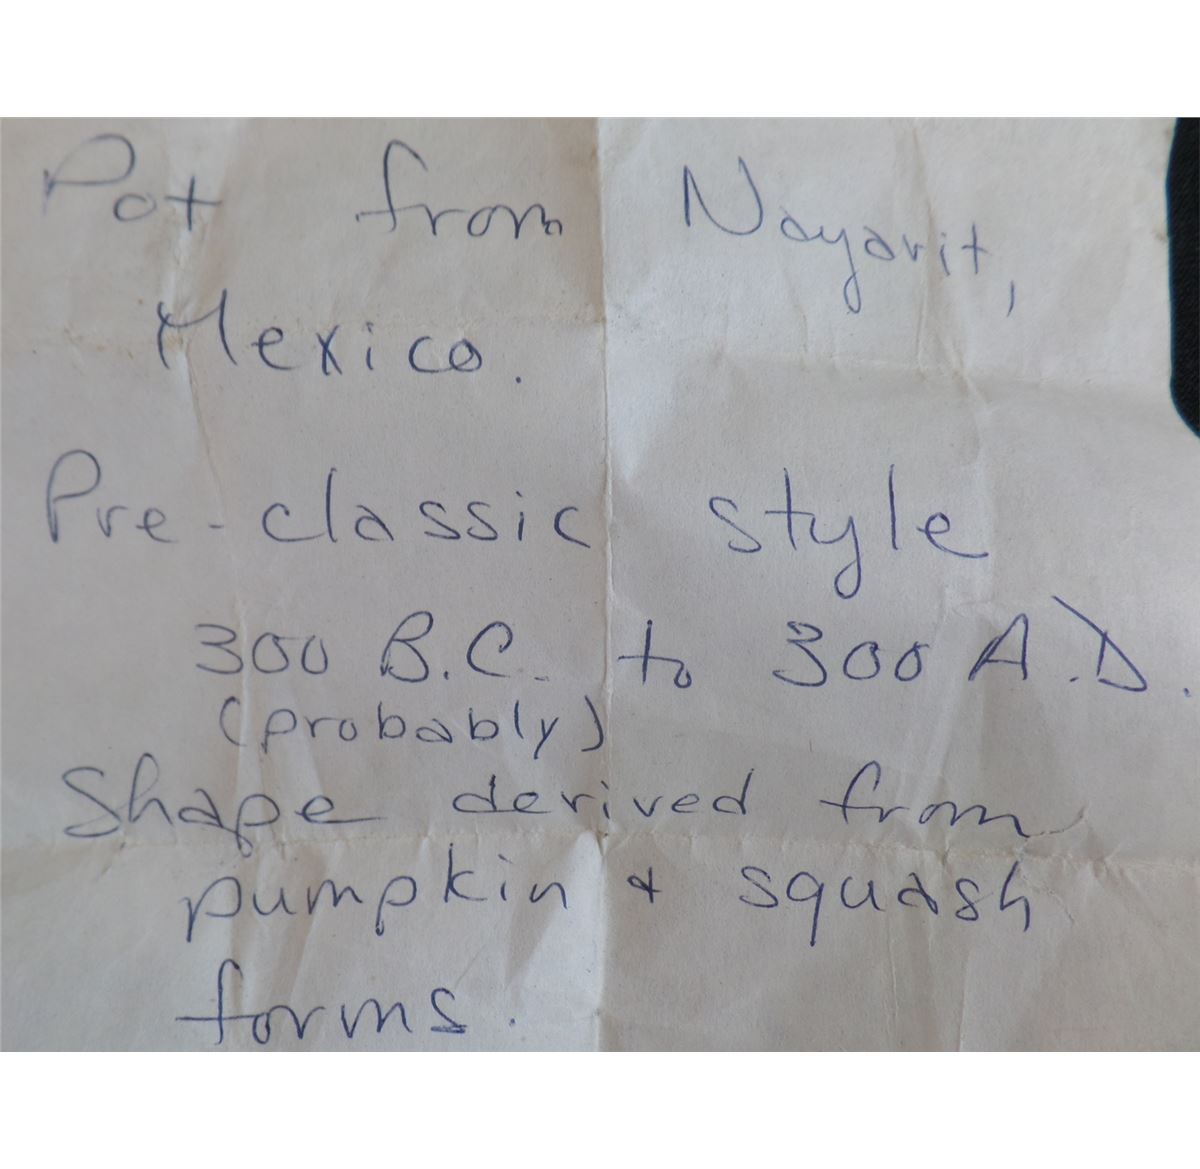 Pot from Nayarit,
Mexico.
Pre-classic style
300 B.C. to 300 A.D.
(probably)
Shape derived from
pumpkin & squash
forms.